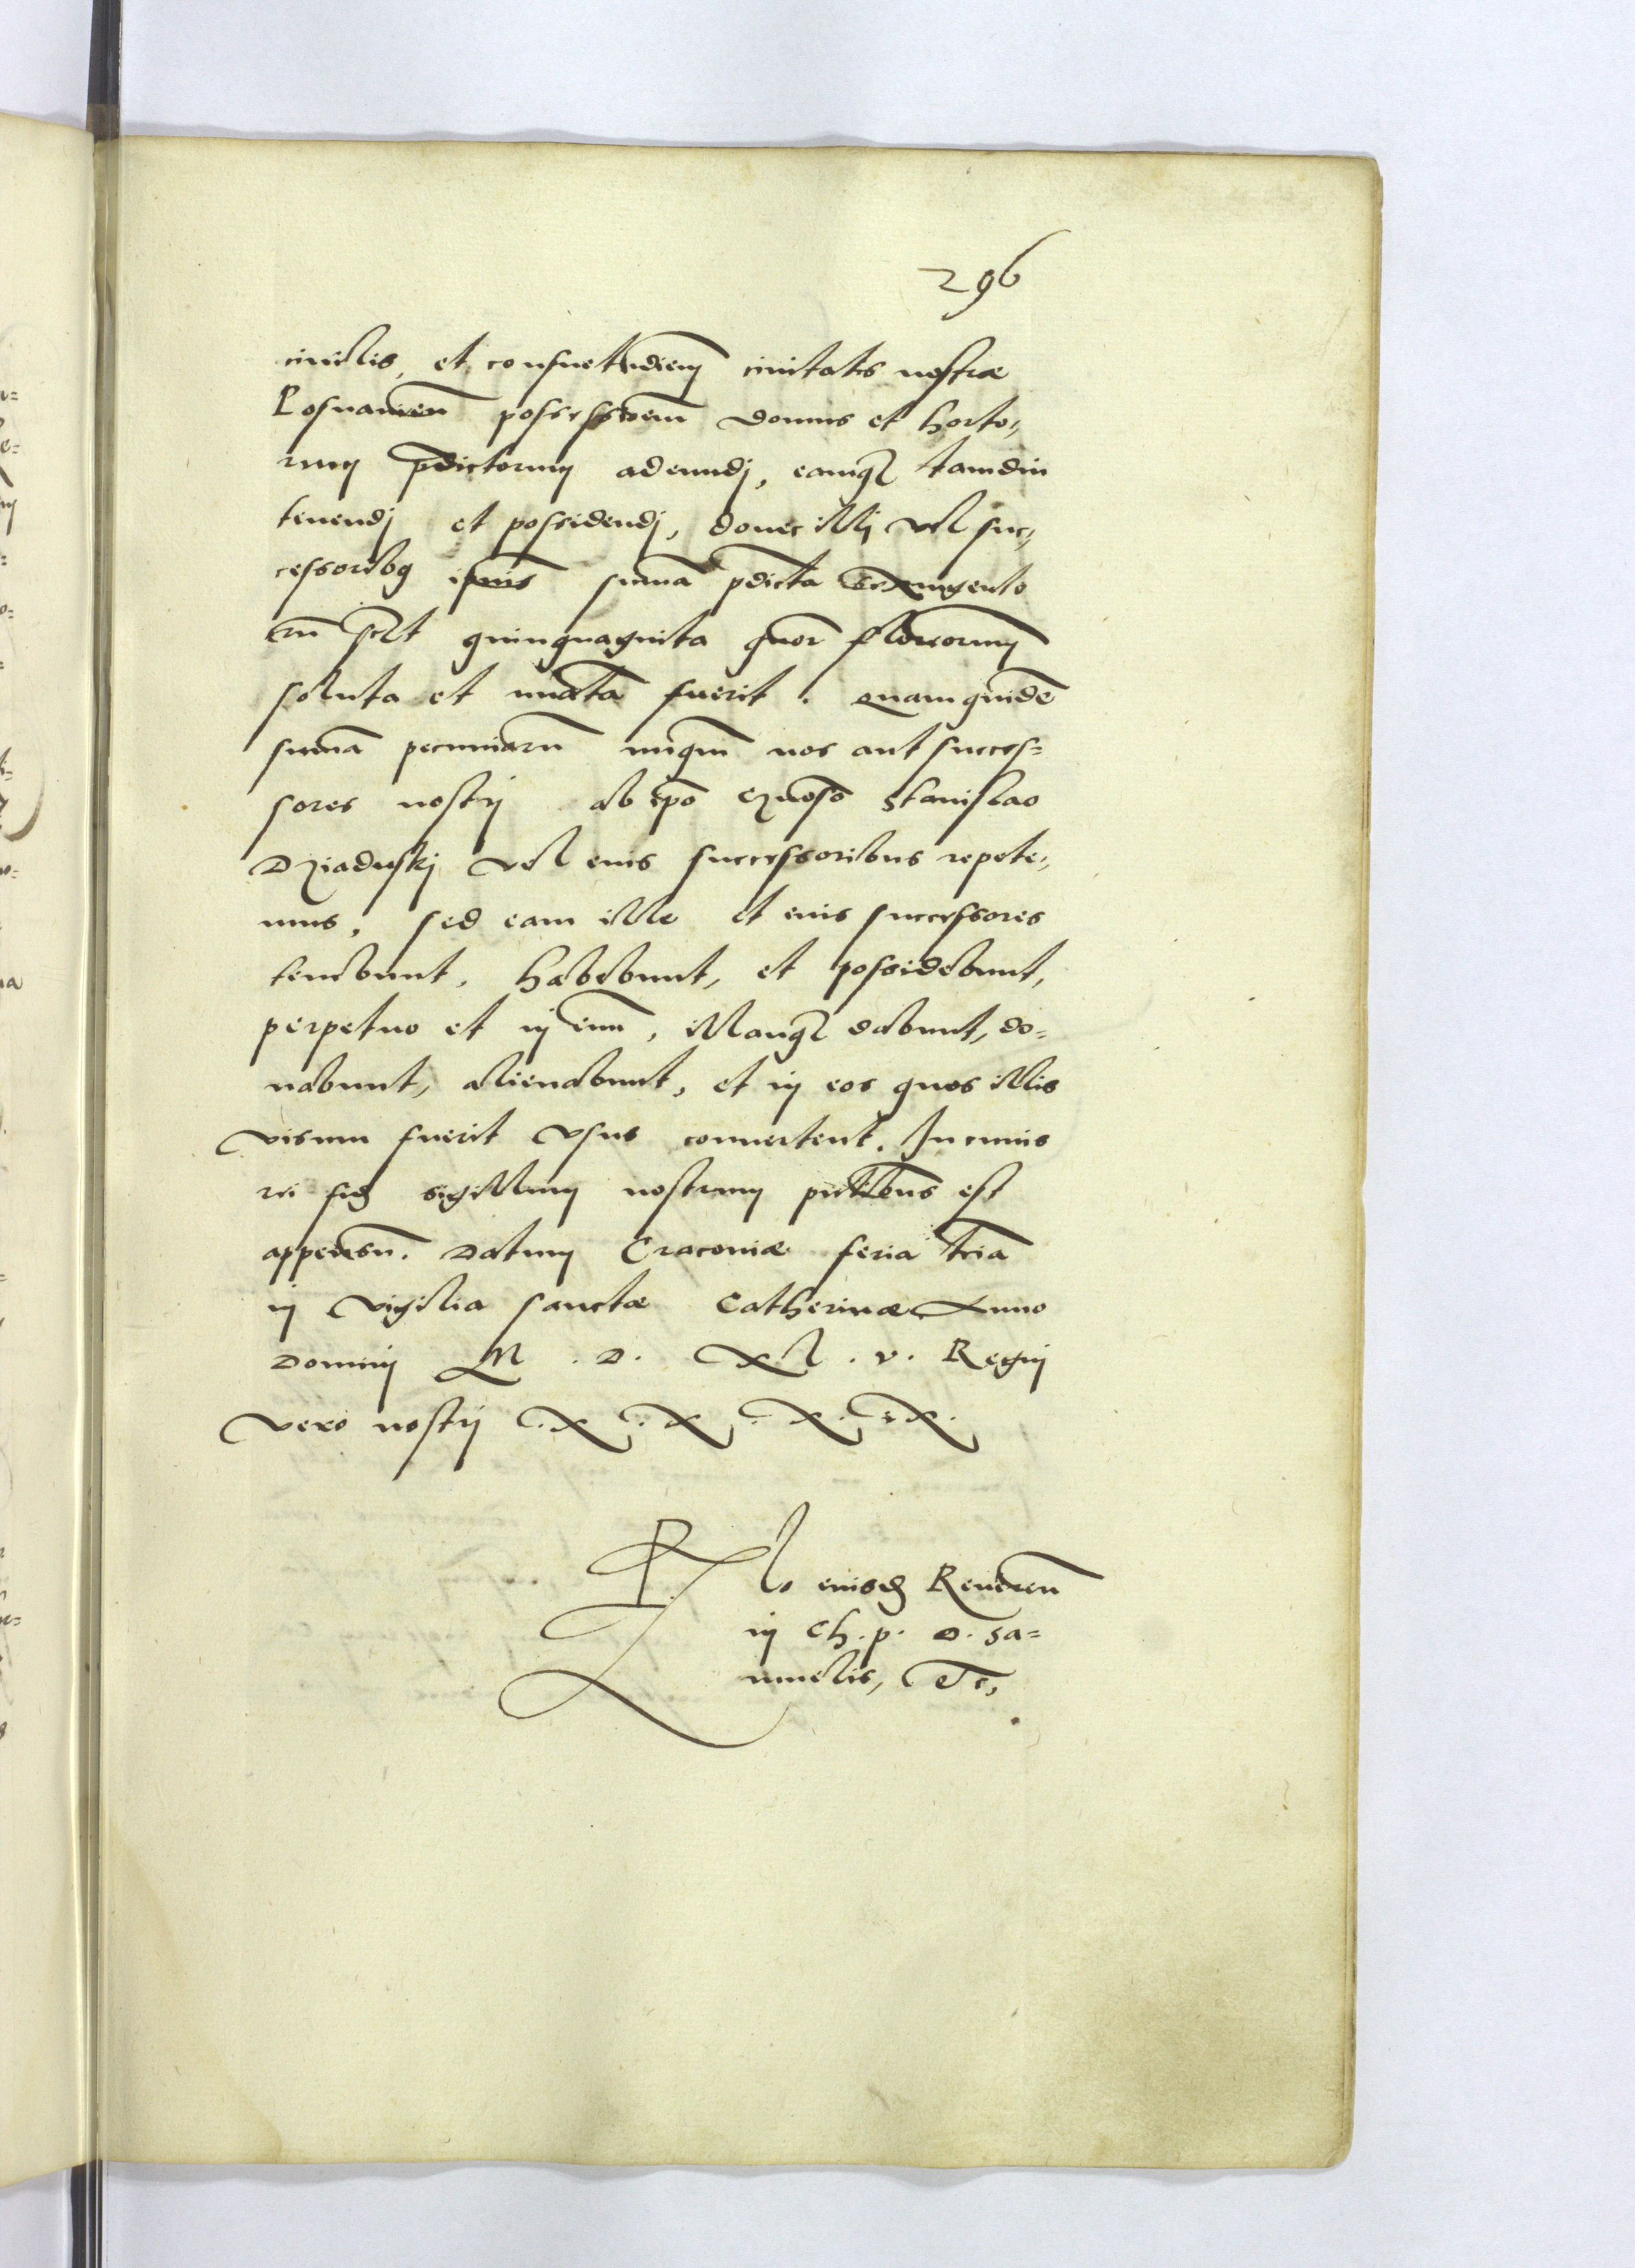 296
ciuilis, et consuetudiem ciuitatis nostræ
Posnanien possessioem domus et horto,
rum pdictorum adeundj, eamq3 tamdiu
tenendj et possidendj, donec illj vel suc,
cessoribq suma pdicta sexingento
rū scłt quinquaginta quor florenorum
soluta et nuata fuerit. Quam quidē
sumā pecuniarū nuqm nos aut succes=
sores nostrj ab ipō Gnōsō Stanislao
Dziaduskj vel eius successoribus repete,
mus, sed eam ille et eius successores
tenebunt, habebunt, et possidebunt,
perpetuo et in euū, illamq3 dabunt, do=
nabunt, alienabunt, et in eos quos illis
visum fuerit vsus conuertent. In cuius
rei fid sigillum nostrum pntibus est
appensū. Datum Cracouiæ feria tcia
in vigilia sanctæ Catherinæ Anno
Dominj M . D . XL . v . Regnj
vero nostrj .X.X.X.IX.
Rlo eiusd Reueren
in Ch. p. D. Sa=
muelis, Etc,